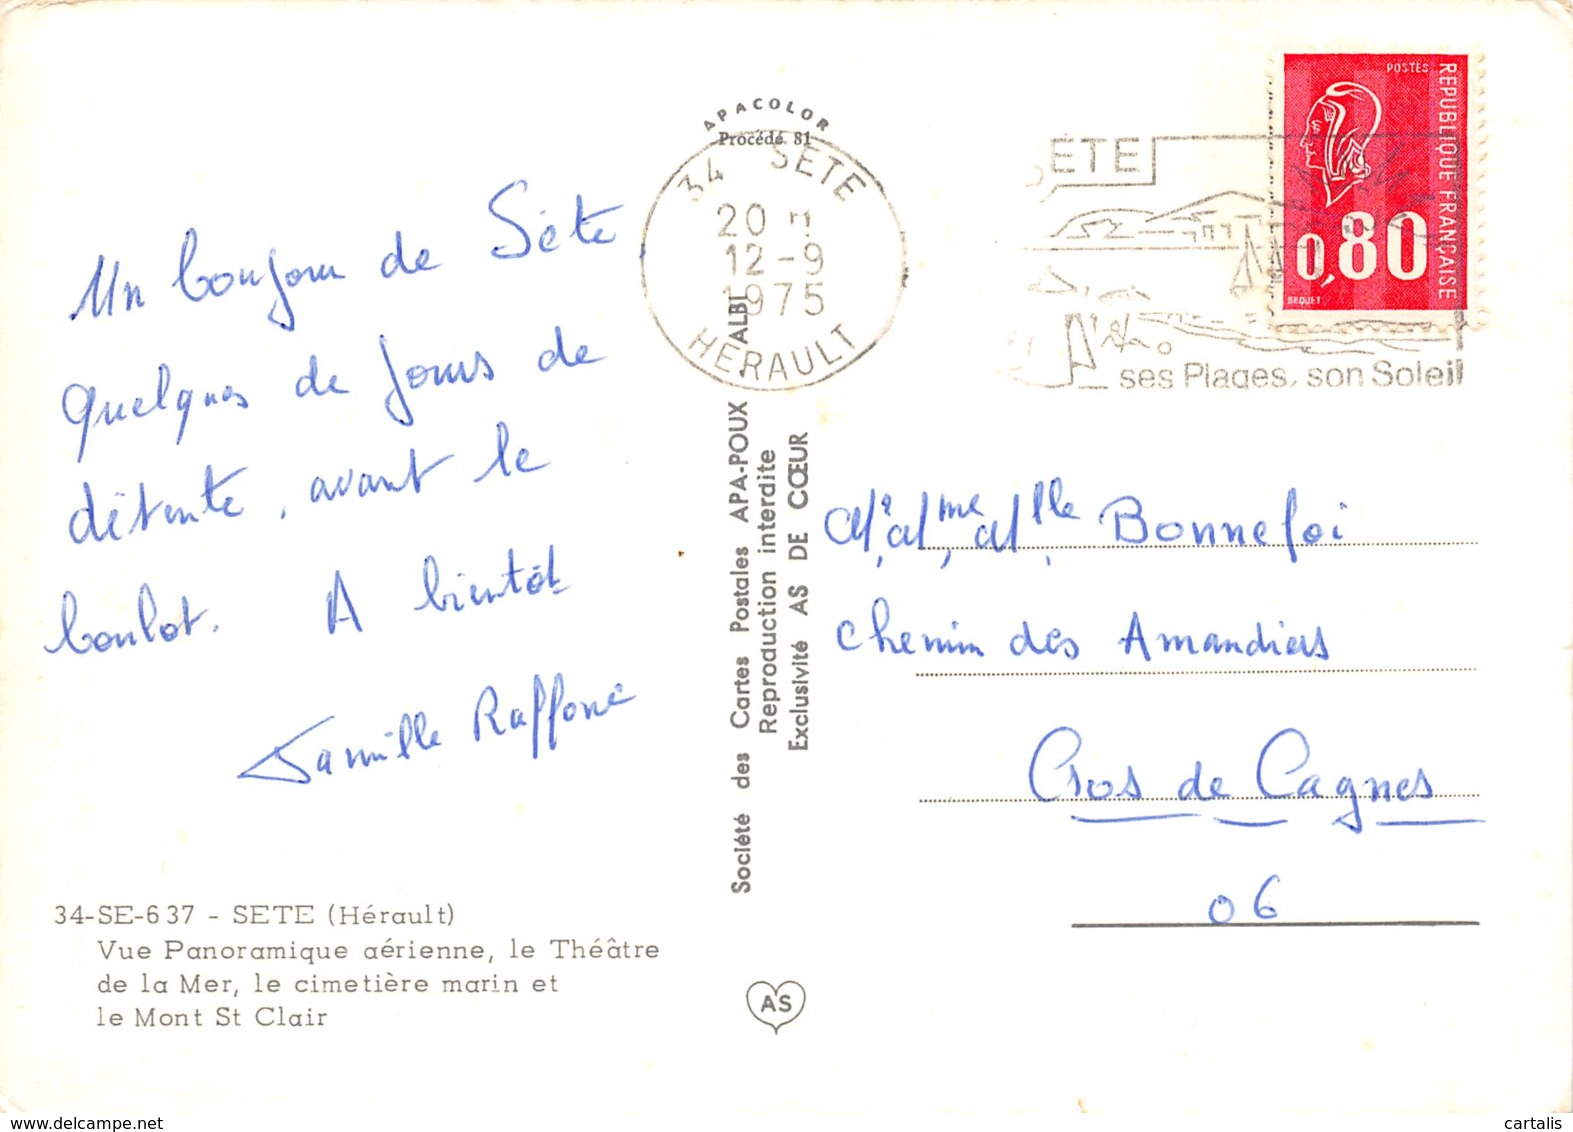 APACOLOR
Procédé 81
34 SETE
20 H
12-9
1975
HERAULT
SÈTE
ses Plages, son Soleil
POSTES
REPUBLIQUE FRANÇAISE
0,80
BEQUET
Un bonjour de Sète
Quelques de jours de
détente, avant le
boulot. A bientôt
Famille Raffoné
Société des Cartes Postales APA-POUX ALBI
Reproduction interdite
Exclusivité AS DE CŒUR
Mr, Mme, Mlle Bonnefoi
Chemin des Amandiers
Cros de Cagnes
06
34-SE-637 - SETE (Hérault)
Vue Panoramique aérienne, le Théâtre
de la Mer, le cimetière marin et
le Mont St Clair
AS
https://www.delcampe.net
cartalis